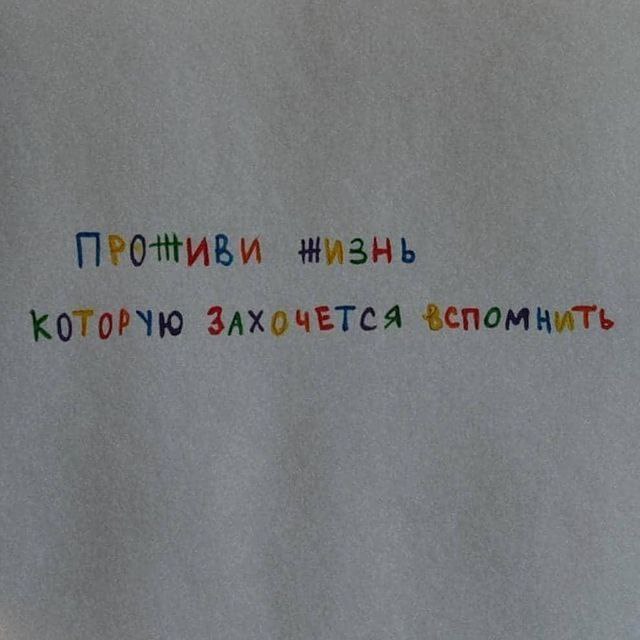 ПРОЖИВИ ЖИЗНЬ
КОТОРУЮ ЗАХОЧЕТСЯ ВСПОМНИТЬ